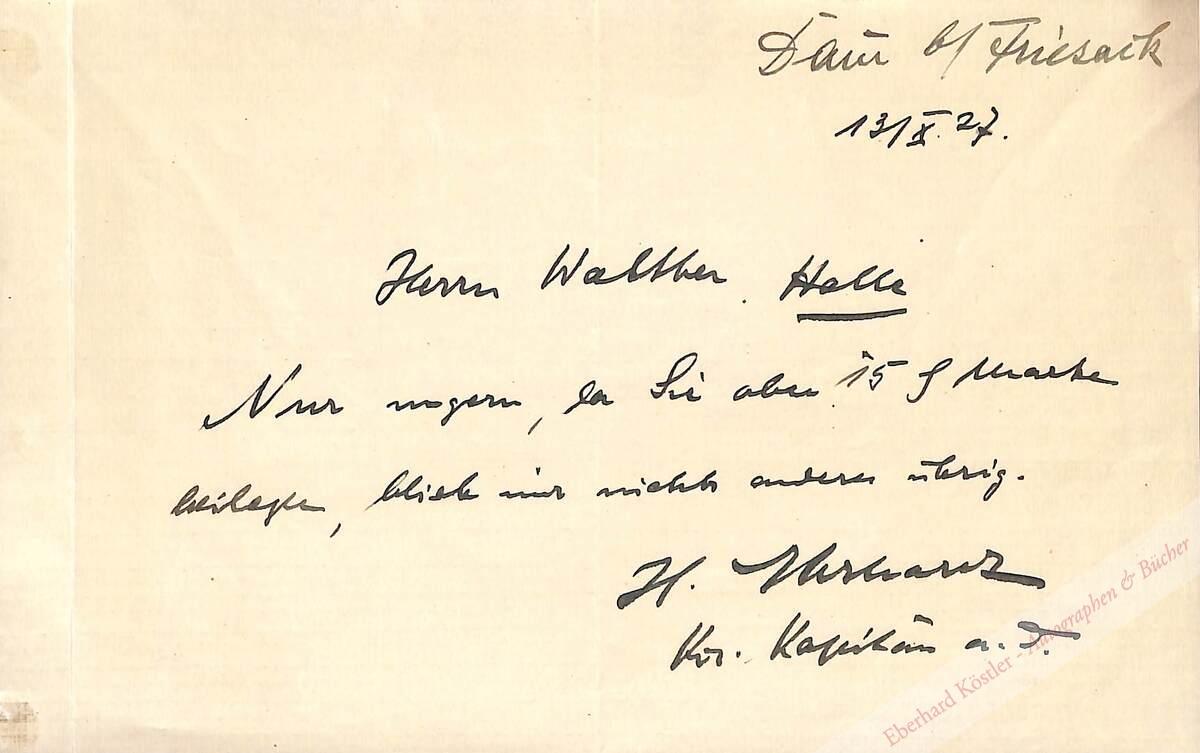 Däm b/ Friesack
13/X.27.
Herrn Walther Halle
Nur ungern, da Sie aber 15 ₰ Marke
beilegten, blieb mir nichts anderes übrig.
H. Ehrhardt
Kor. Kapitän a. D.
Eberhard Köstler - Autographen & Bücher